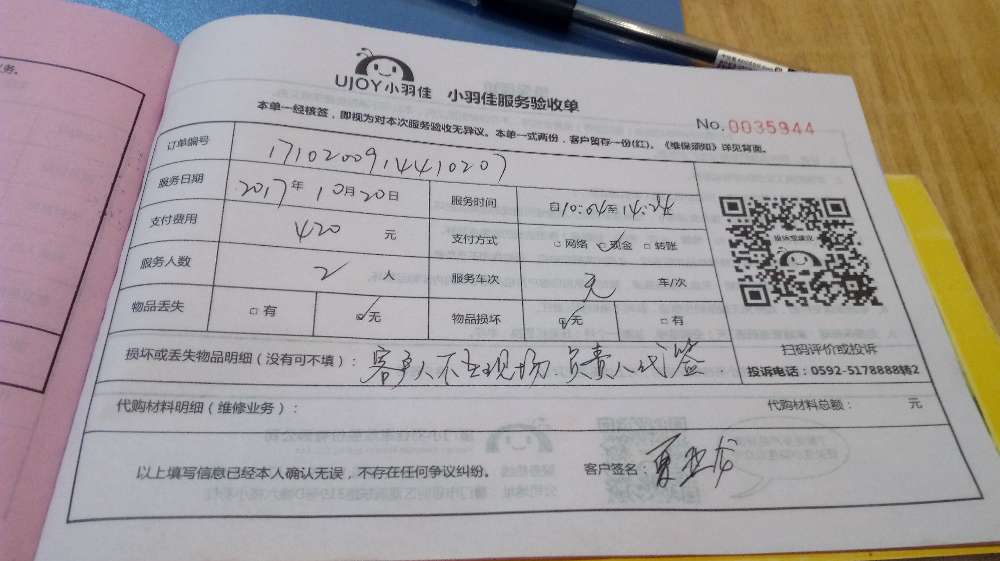 务。
UJOY小羽佳 小羽佳服务验收单
本单一经核签，即视为对本次服务验收无异议。本单一式两份，客户留存一份(红)。《维保须知》详见背面。
No.0035944
订单编号 171020091441 0207
服务日期 2017年10月20日 服务时间 自10:04至14:24
支付费用 420 元 支付方式 □网络 ☑现金 □转账
服务人数 2 人 服务车次 无 车/次
物品丢失 □有 ☑无 物品损坏 ☑无 □有
扫码评价或投诉
投诉电话：0592-5178888转2
损坏或丢失物品明细（没有可不填）： 客户人不在现场.负责人代签
代购材料明细（维修业务）： 代购材料总额： 元
以上填写信息已经本人确认无误，不存在任何争议纠纷。 客户签名：